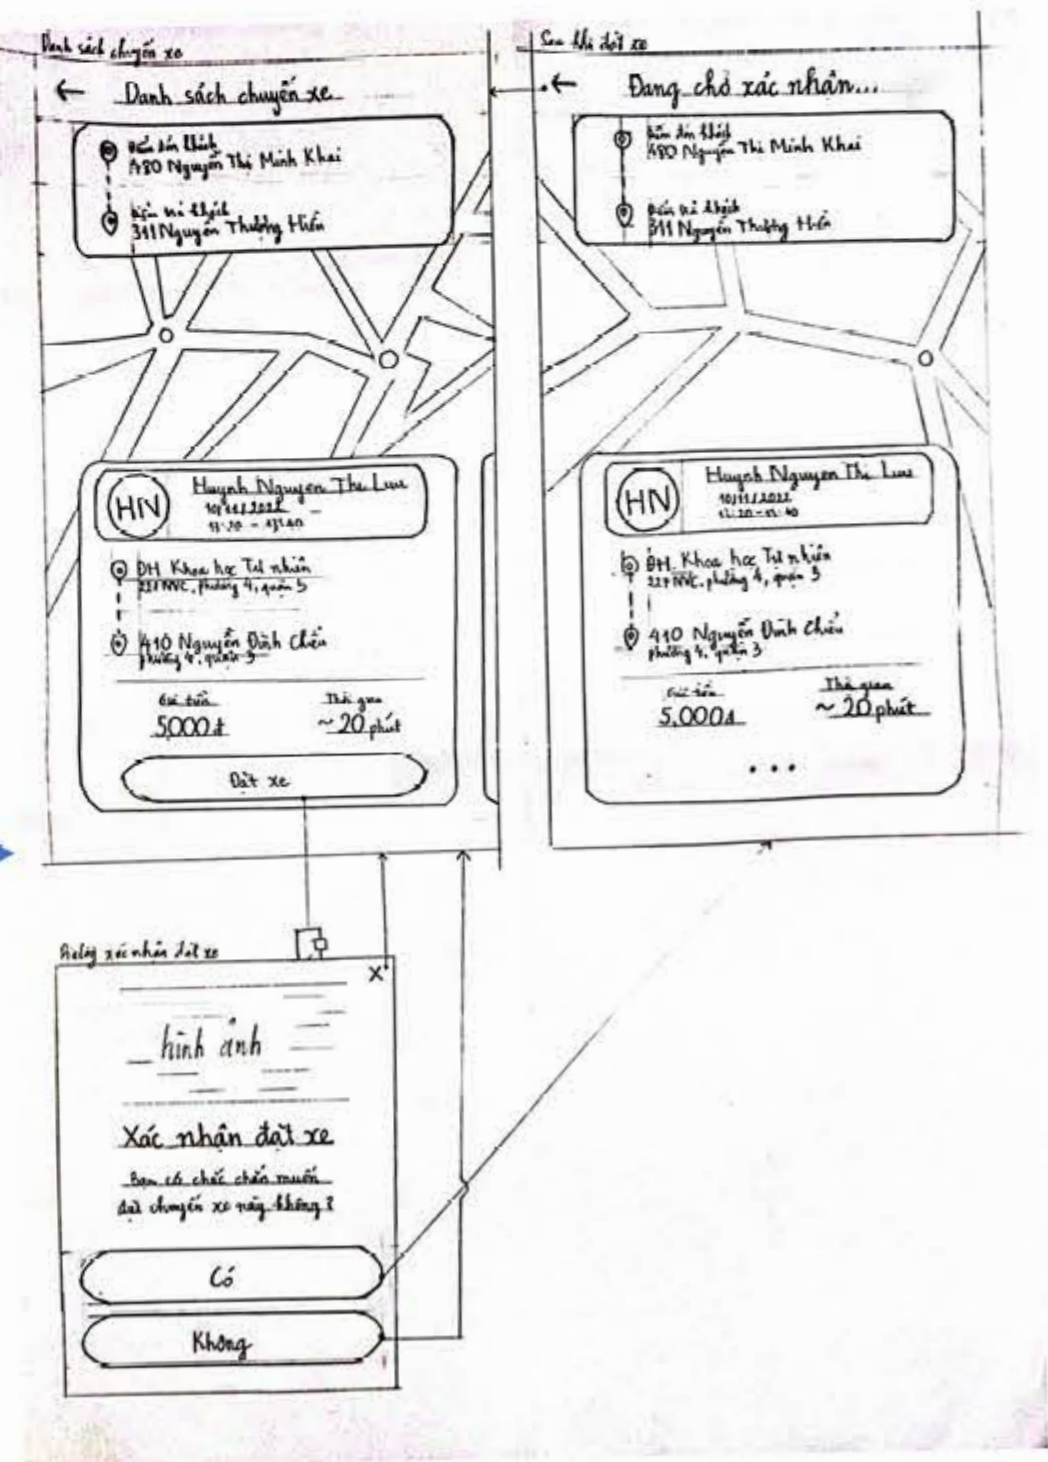 Danh sách chuyến xe
← Danh sách chuyến xe
Điểm đón khách
480 Nguyễn Thị Minh Khai
Điểm trả khách
311 Nguyễn Thượng Hiền
HN
Huynh Nguyen The Luu
10/11/2022
13:20 - 13:40
ĐH Khoa học Tự nhiên
227 NVC, phường 4, quận 5
410 Nguyễn Đình Chiểu
phường 4, quận 3
Giá tiền
5,000đ
Thời gian
~ 20 phút
Đặt xe
Sau khi đặt xe
← Đang chờ xác nhận...
Điểm đón khách
480 Nguyễn Thị Minh Khai
Điểm trả khách
311 Nguyễn Thượng Hiền
HN
Huynh Nguyen The Luu
10/11/2022
ĐH Khoa học Tự nhiên
227 NVC, phường 4, quận 5
410 Nguyễn Đình Chiểu
phường 4, quận 3
Giá tiền
5,000đ
Thời gian
~ 20 phút
...
xác nhận đặt xe
X
hình ảnh
Xác nhận đặt xe
Bạn có chắc chắn muốn
đặt chuyến xe này không?
Có
Không